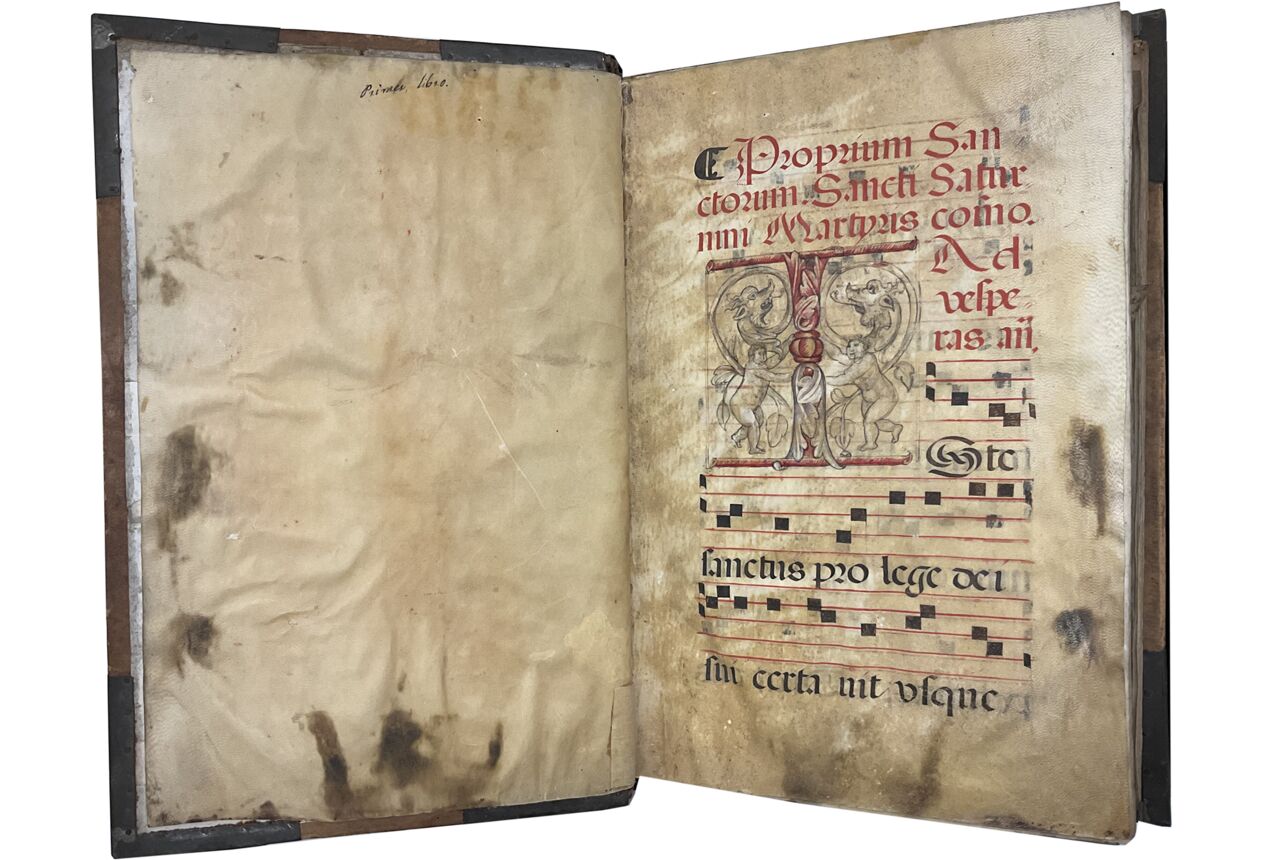 Primer, libro.
Proprium San
ctorum. Sancti Satur
nini Martyris
Ad
veſpe
ras añ.
ISte
ſanctus pro lege dei
ſui certa uit vſque